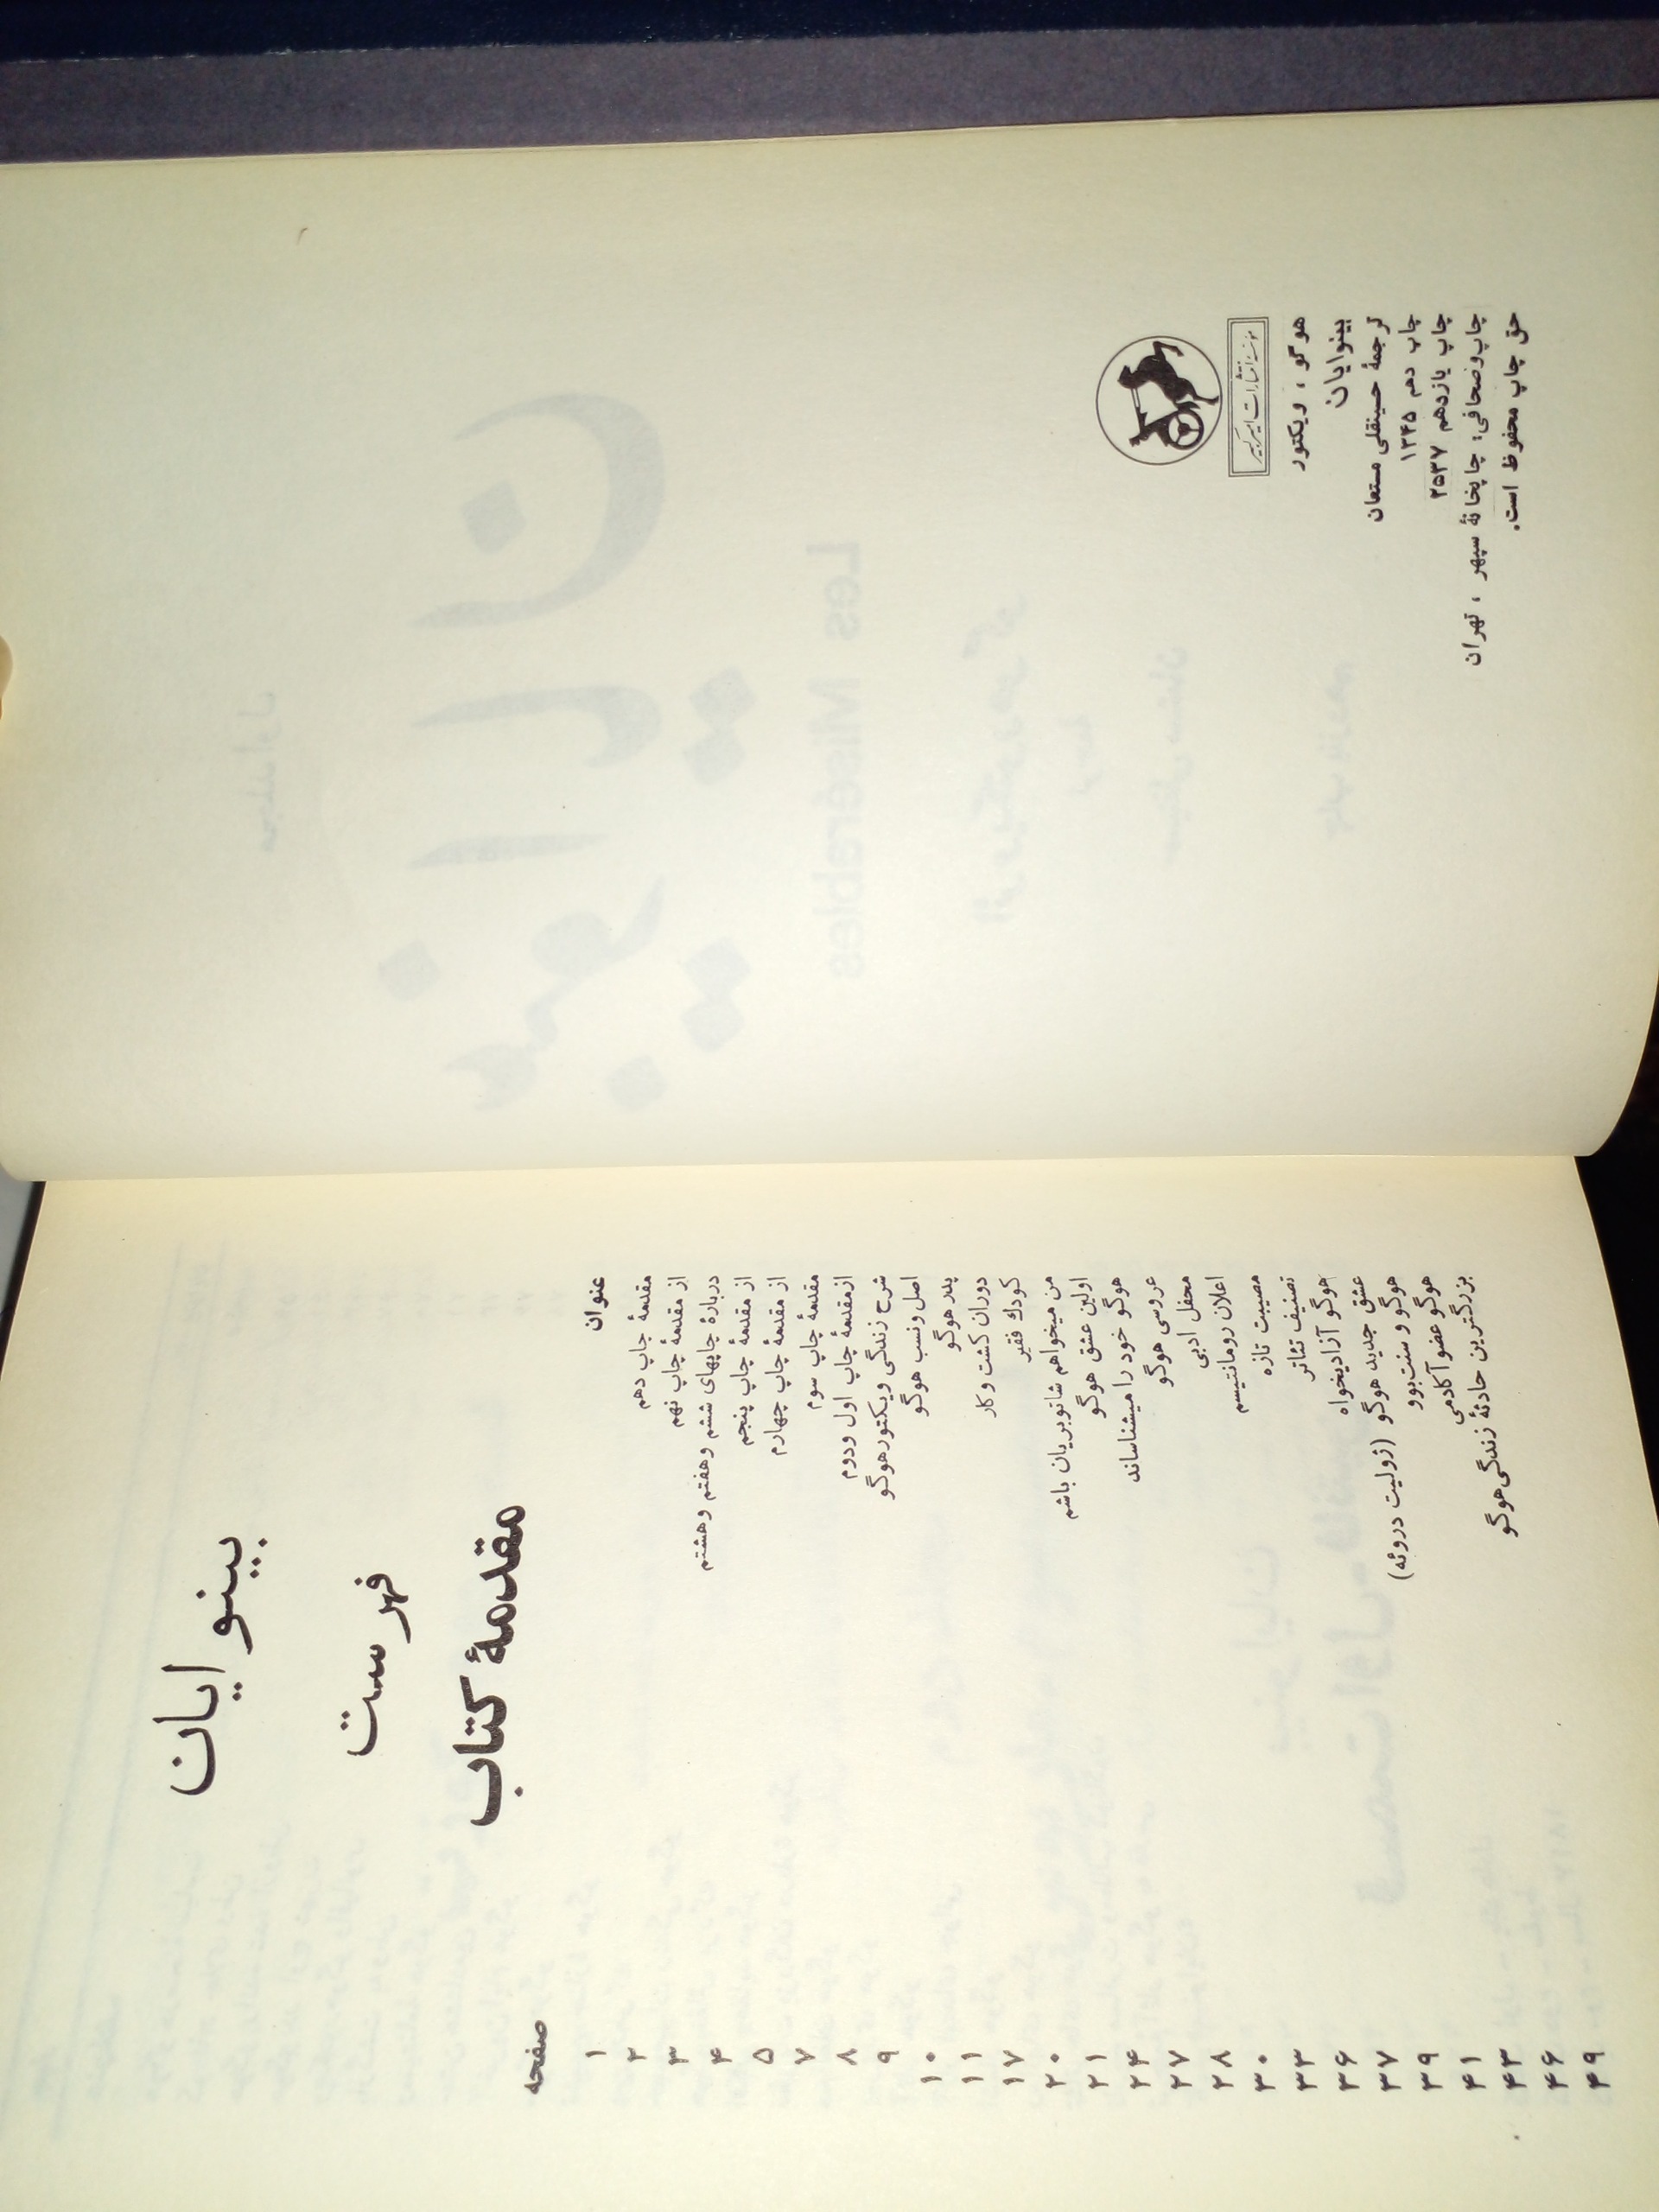 مؤسسه انتشارات امیرکبیر
هوگو ، ویکتور
بینوایان
ترجمهٔ حسینقلی مستعان
چاپ دهم ۱۳۴۵
چاپ یازدهم ۲۵۳۷
چاپ وصحافی: چاپخانهٔ سپهر ، تهران
حق چاپ محفوظ است.
بینوایان
فهرست
مقدمهٔ کتاب
عنوان صفحه
مقدمهٔ چاپ دهم ۱
از مقدمهٔ چاپ نهم ۲
دربارهٔ چاپهای ششم وهفتم وهشتم ۳
از مقدمهٔ چاپ پنجم ۴
از مقدمهٔ چاپ چهارم ۵
مقدمهٔ چاپ سوم ۷
ازمقدمهٔ چاپ اول ودوم ۸
شرح زندگی ویکتورهوگو ۹
اصل ونسب هوگو ۱۰
پدر هوگو ۱۱
دوران کشت وکار ۱۷
کودك فقیر ۲۰
من میخواهم شاتوبریان باشم ۲۱
اولین عشق هوگو ۲۴
هوگو خود را میشناساند ۲۷
عروسی هوگو ۲۸
محفل ادبی ۳۰
اعلان رومانتیسم ۳۳
مصیبت تازه ۳۶
تصنیف تئاتر ۳۷
هوگو آزادیخواه ۳۹
عشق جدید هوگو (ژولیت دروئه) ۴۱
هوگو و سنت‌بوو ۴۳
هوگو عضو آکادمی ۴۶
بزرگترین حادثهٔ زندگی هوگو ۴۹